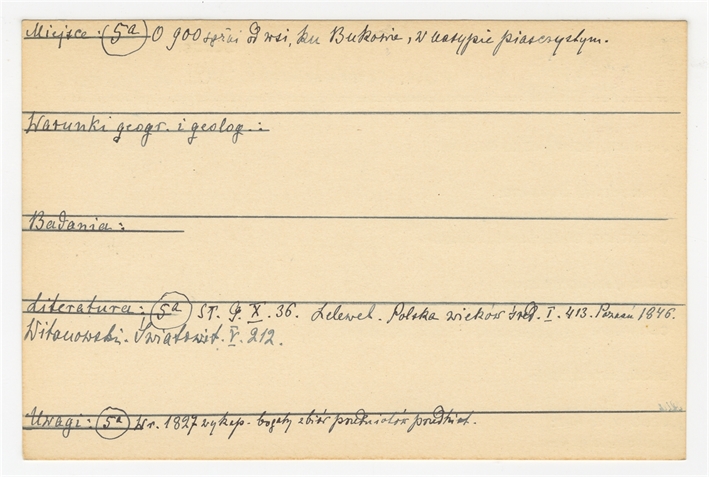 Miejsce: 5a O 900 od wsi, ku Bukowie, w nasypie piasczystym.
Warunki geogr. i geolog.:
Badania:
Literatura: 5a St. G. X. 36. Lelewel. Polska wieków śred. I. 413. Poznań 1846.
Witanowski. Światowit. V. 212.
Uwagi: 5a W r. 1827 wykop. bogaty zbiór przedmiotów przedhist.